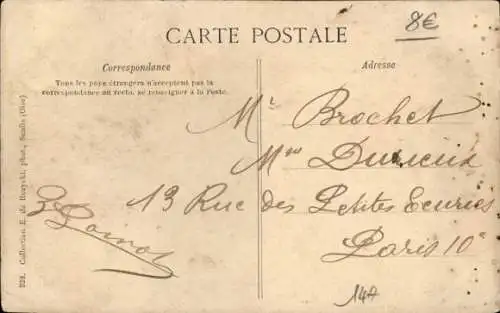 CARTE POSTALE
8€
Correspondance
Adresse
Tous les pays étrangers n'acceptent pas la
correspondance au recto, se renseigner à la Poste.
Mr Brochet
Mme
13 Rue des Petites Ecuries
Paris 10e
140
228. Collection E. de Rozycki, phot., Senlis (Oise)